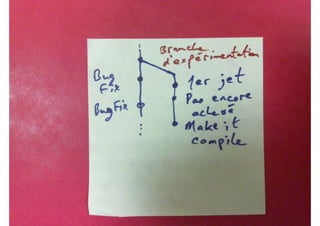 Branche
d'expérimentation
Bug
Fix
1er jet
Pas encore
achevé
Bug Fix
Make it
compile